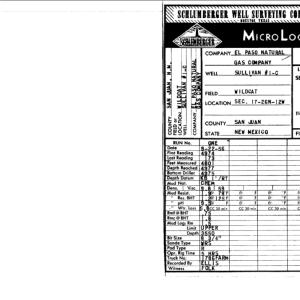 SCHLUMBERGER WELL SURVEYING CO
HOUSTON, TEXAS
SCHLUMBERGER
MICROLO
COUNTY SAN JUAN, N.M.
FIELD or
LOCATION WILDCAT
WELL SULLIVAN #1-C
COMPANY EL PASO NATURAL
GAS COMPANY
COMPANY EL PASO NATURAL
GAS COMPANY
WELL SULLIVAN #1-C
FIELD WILDCAT
LOCATION SEC. 17-26N-12W
COUNTY SAN JUAN
STATE NEW MEXICO
RUN No. ONE
Date 9-22-56
First Reading 4974
Last Reading 173
Feet Measured 4801
Depth Reached 4977
Bottom Driller 4975
Depth Datum
Mud Nat. CHEM
Dens. | Visc.
Mud Resist.
Res. BHT
pH
Wtr. Loss CC 30 min CC 30 min CC 30 min
Rmf @ BHT .75
Rmc @ BHT
Mud Log: Rm 1.5
Limit UPPER
Depth 3550
Bit Size 8 3/4"
Sonde Type
Pad Type
Opr. Rig Time
Truck No. 1786FARM
Recorded By ELLIS
Witness POLK